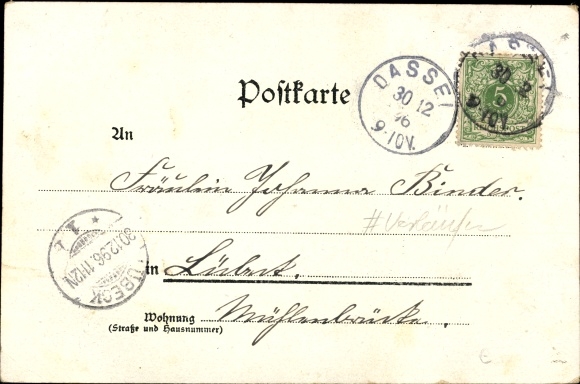 Postkarte
DASSEL
30 12
96
9-10V.
DASSEL
30 12
5
9-10V.
An
Fräulein Johanna Binder.
in Lübeck.
LÜBECK
30.12.96. 11-12N.
* 1
Wohnung Mühlenbrücke.
(Straße und Hausnummer)